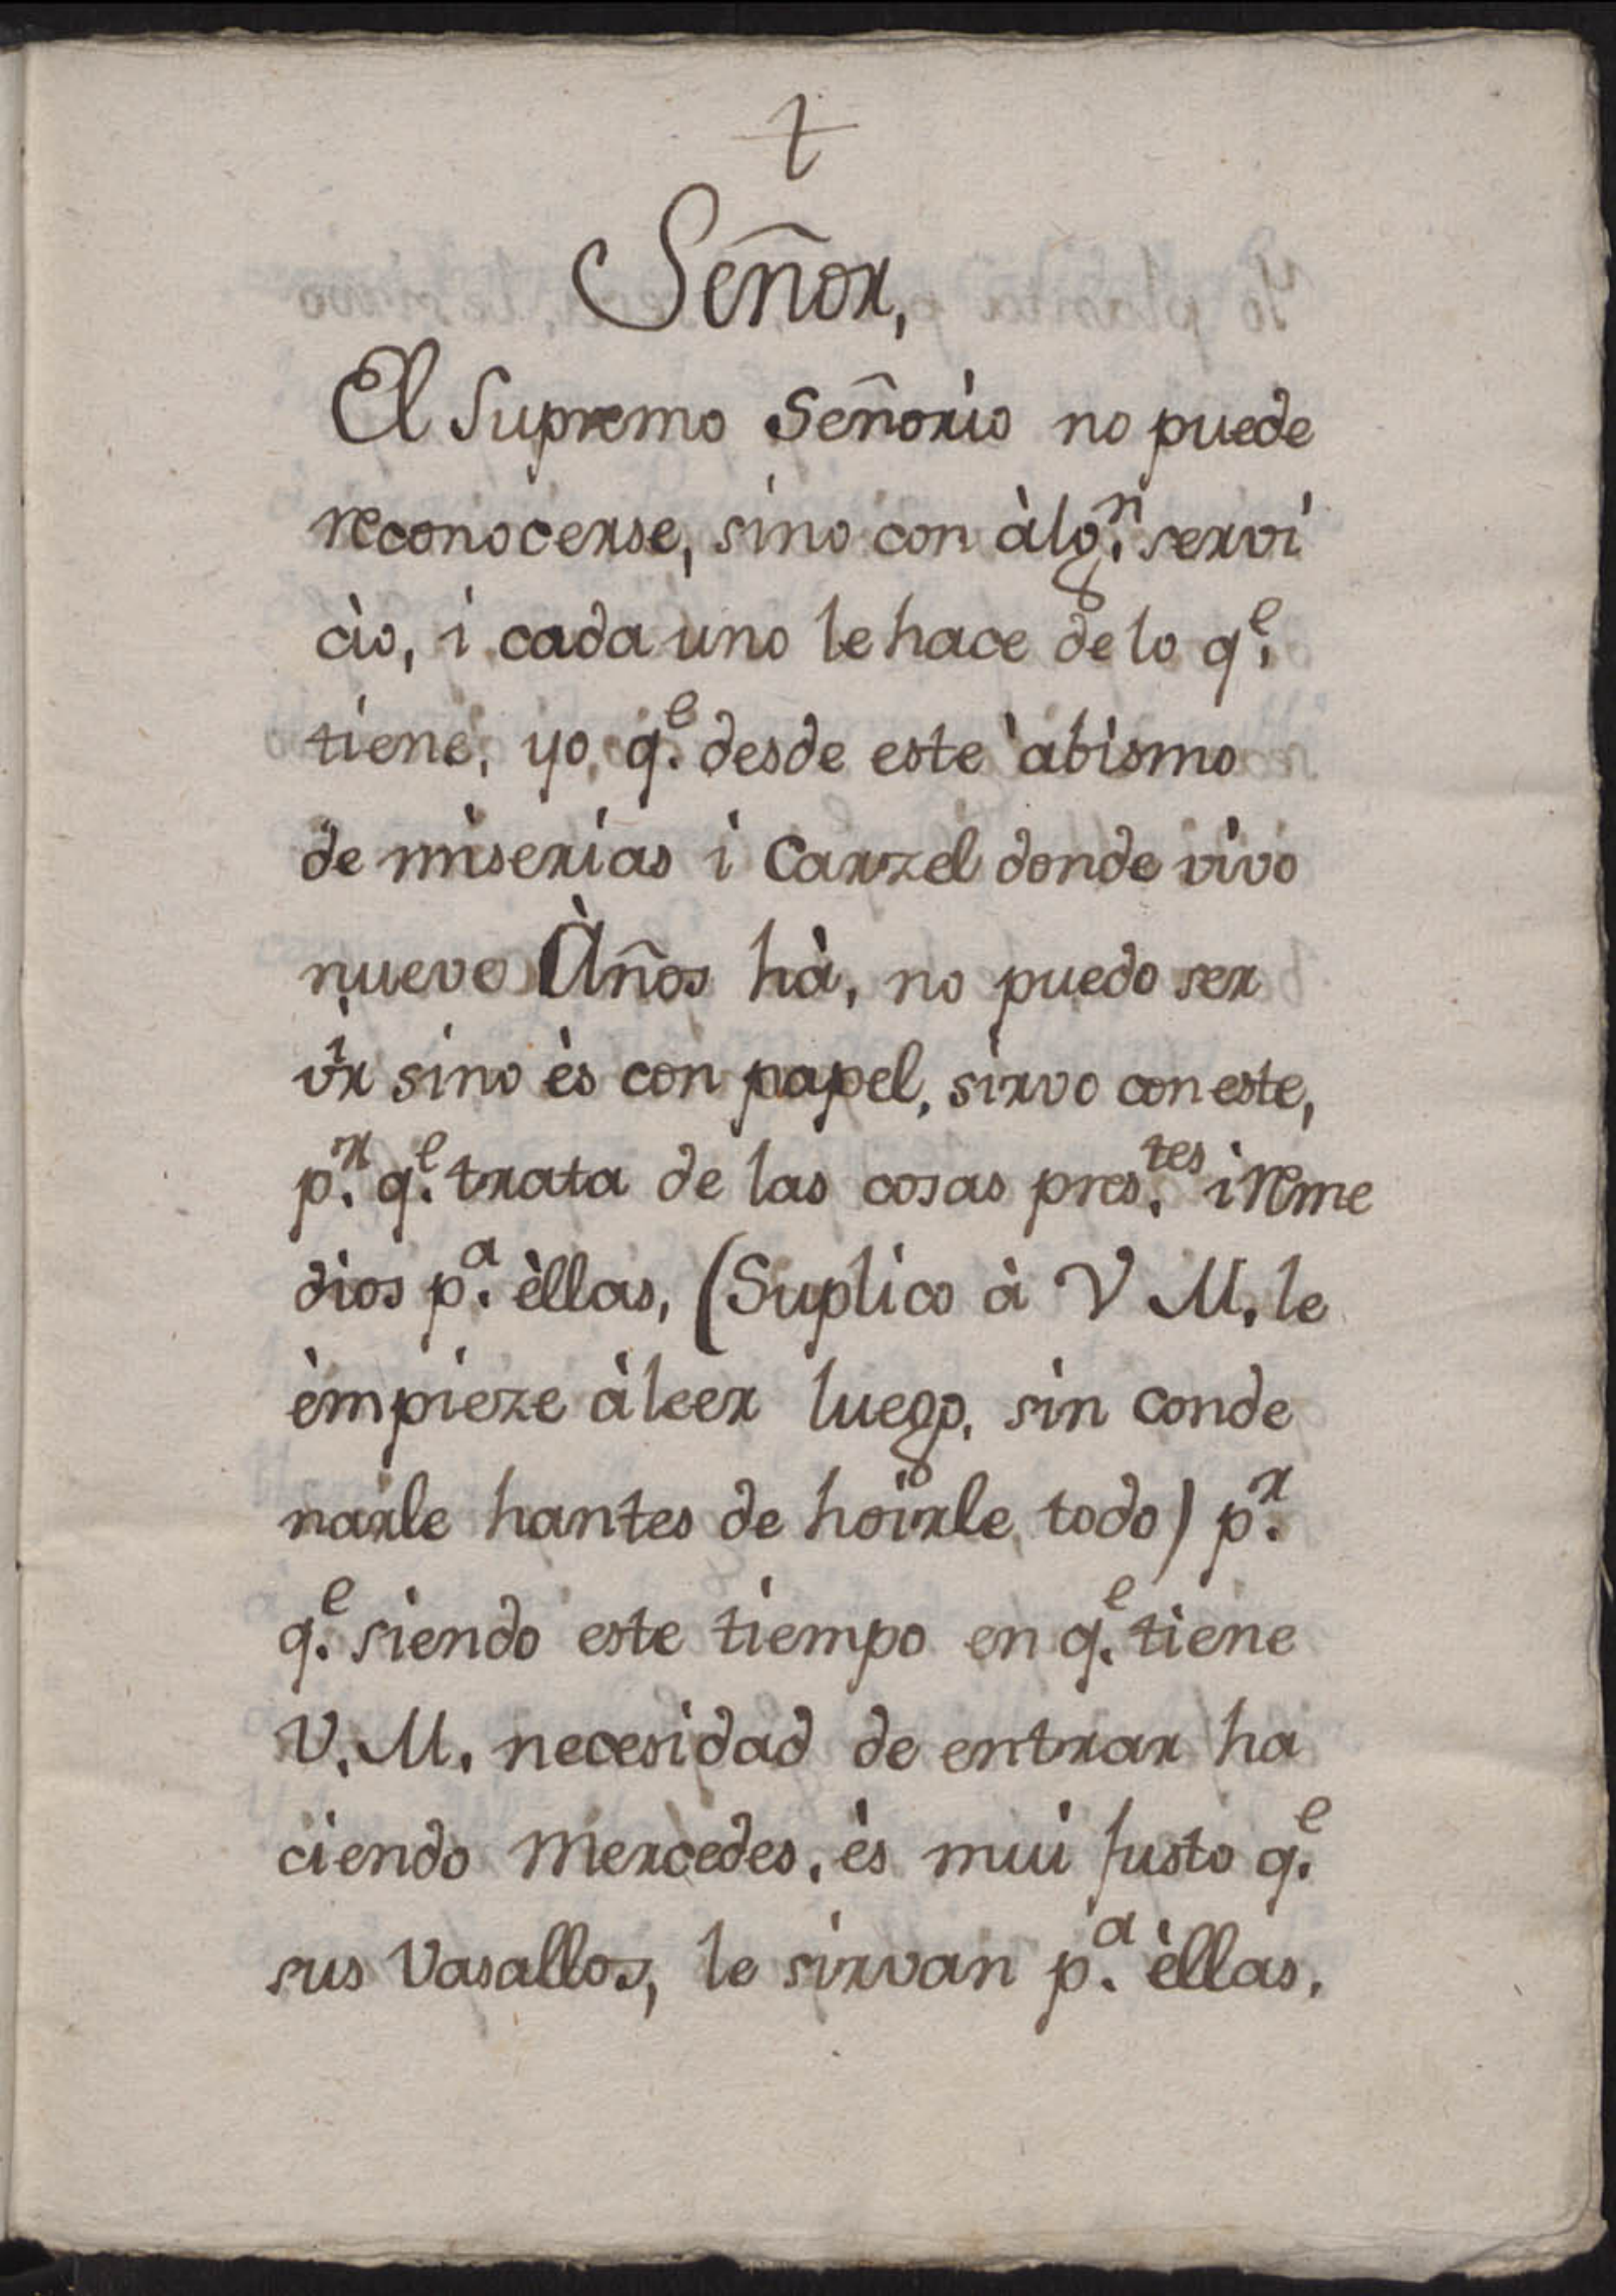 †
Señor,
El Supremo Señorìo no puede
reconocerse, sino con àlg.ⁿ servi
cìo, i cada uno le hace de lo q.ᵉ
tiene, yo, q.ᵉ desde este àbismo
de miserias i Carzel donde vivo
nueve Àños hà, no puedo ser
vir sino ès con papel, sirvo con este,
p.ʳ q.ᵉ trata de las cosas pres.ᵗᵉˢ i reme
dios p.ᵃ èllas, (Suplico à V M. le
èmpieze à leer luego, sin conde
narle hantes de hoirle todo) p.ʳ
q.ᵉ siendo este tiempo en q.ᵉ tiene
V. M. necesidad de entrar ha
ciendo Mercedes, ès mui Justo q.ᵉ
sus Vasallos, le sirvan p.ᵃ èllas,